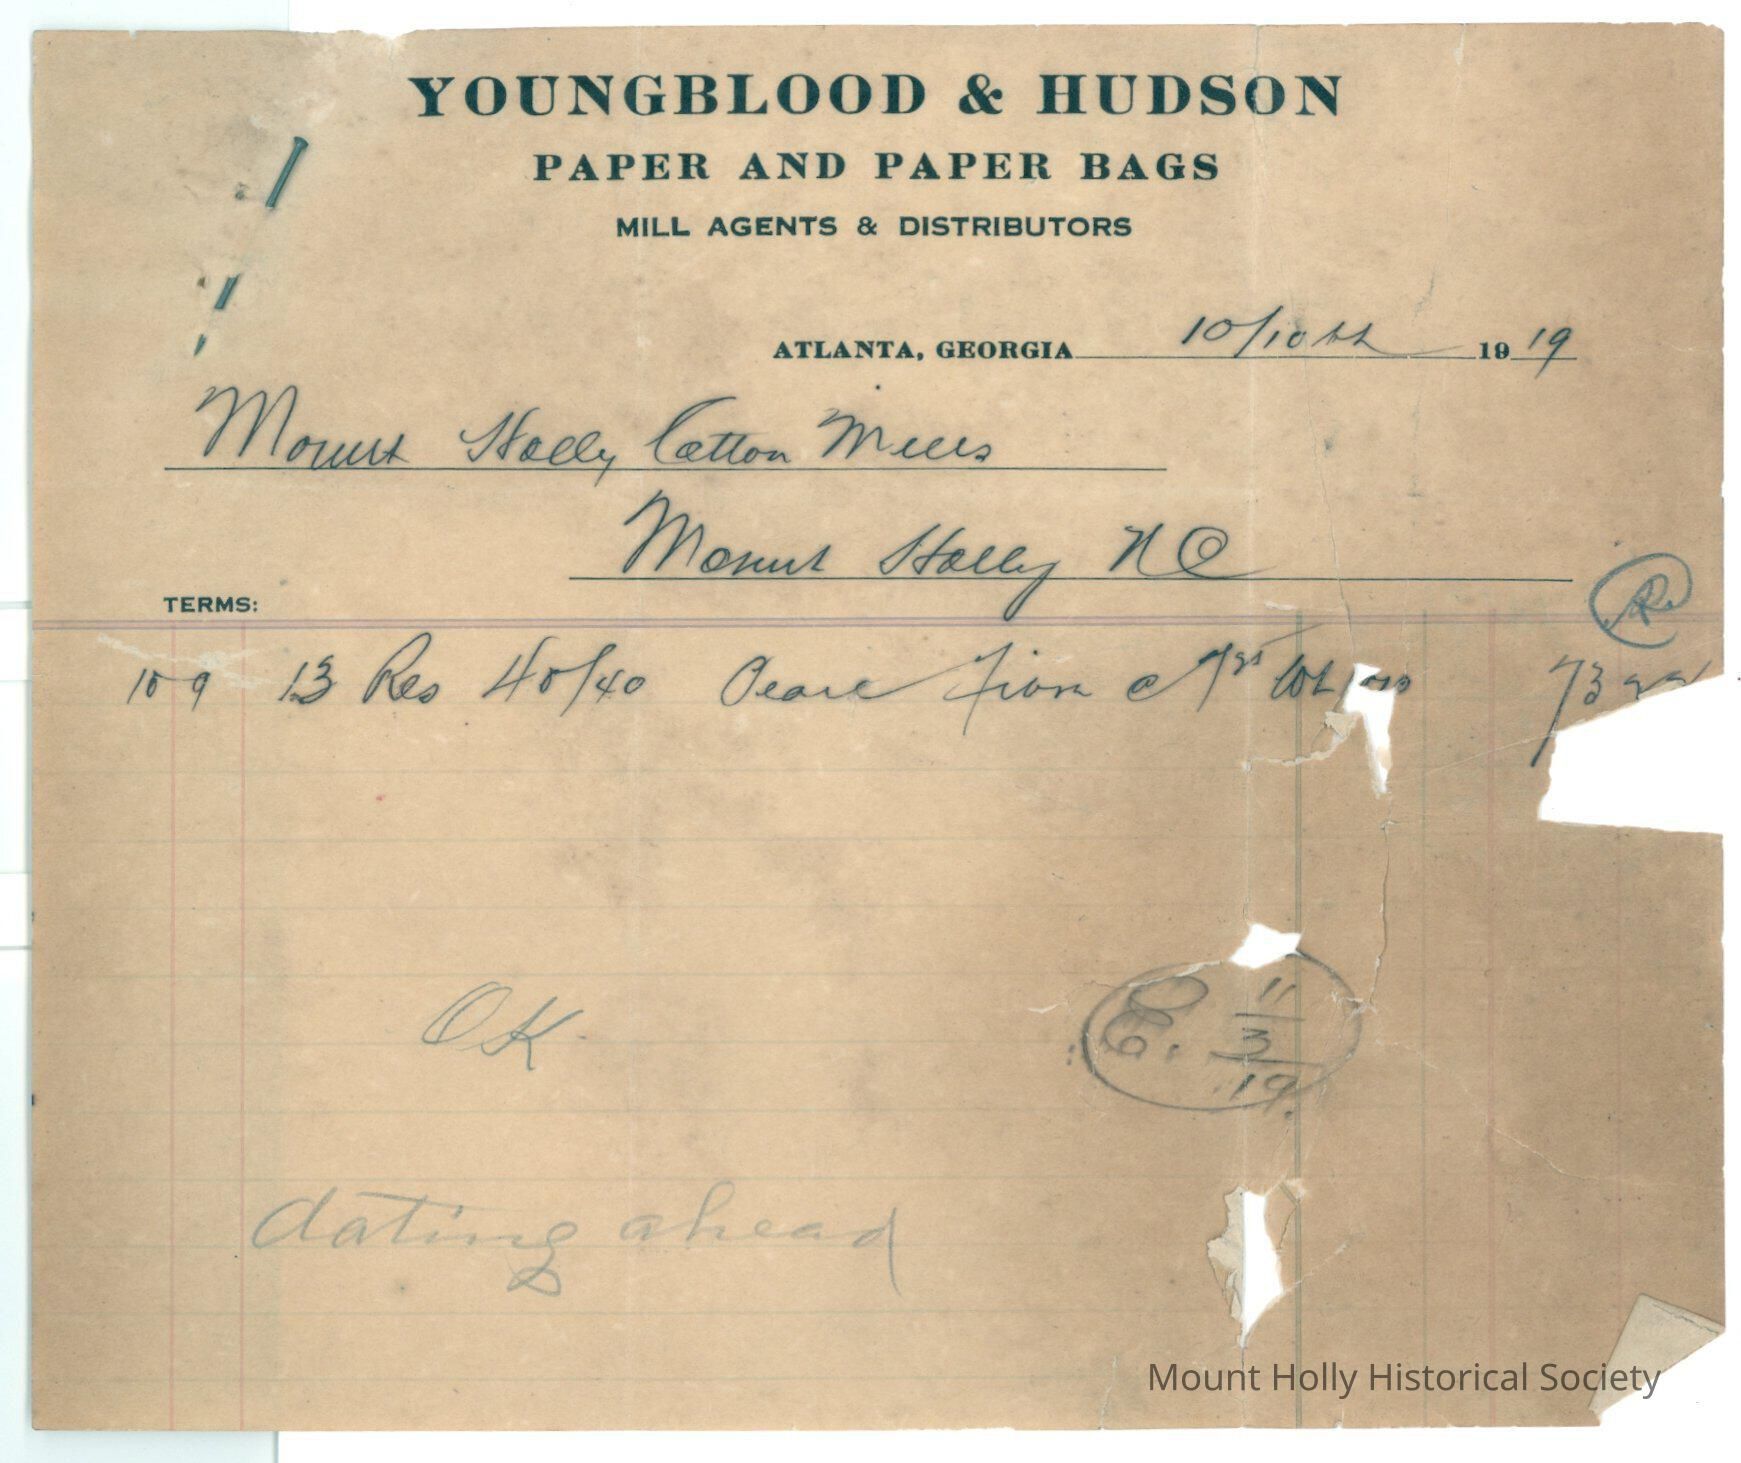 YOUNGBLOOD & HUDSON
PAPER AND PAPER BAGS
MILL AGENTS & DISTRIBUTORS
ATLANTA, GEORGIA 10/10th 1919
Mount Holly Cotton Mills
Mount Holly NC
TERMS:
10 9 13 Res 40/40 73
OK.
E. 11
3
19
dating ahead
Mount Holly Historical Society